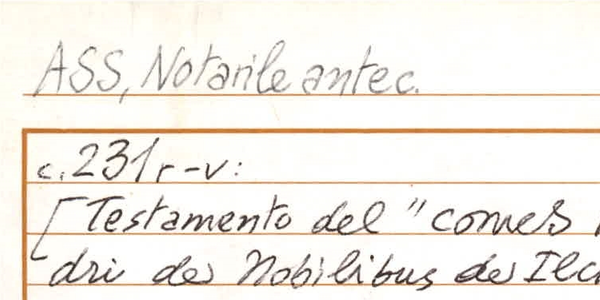 ASS, Notarile antec.
c. 231 r-v:
[Testamento del "comes
dri de Nobilibus de Ilc